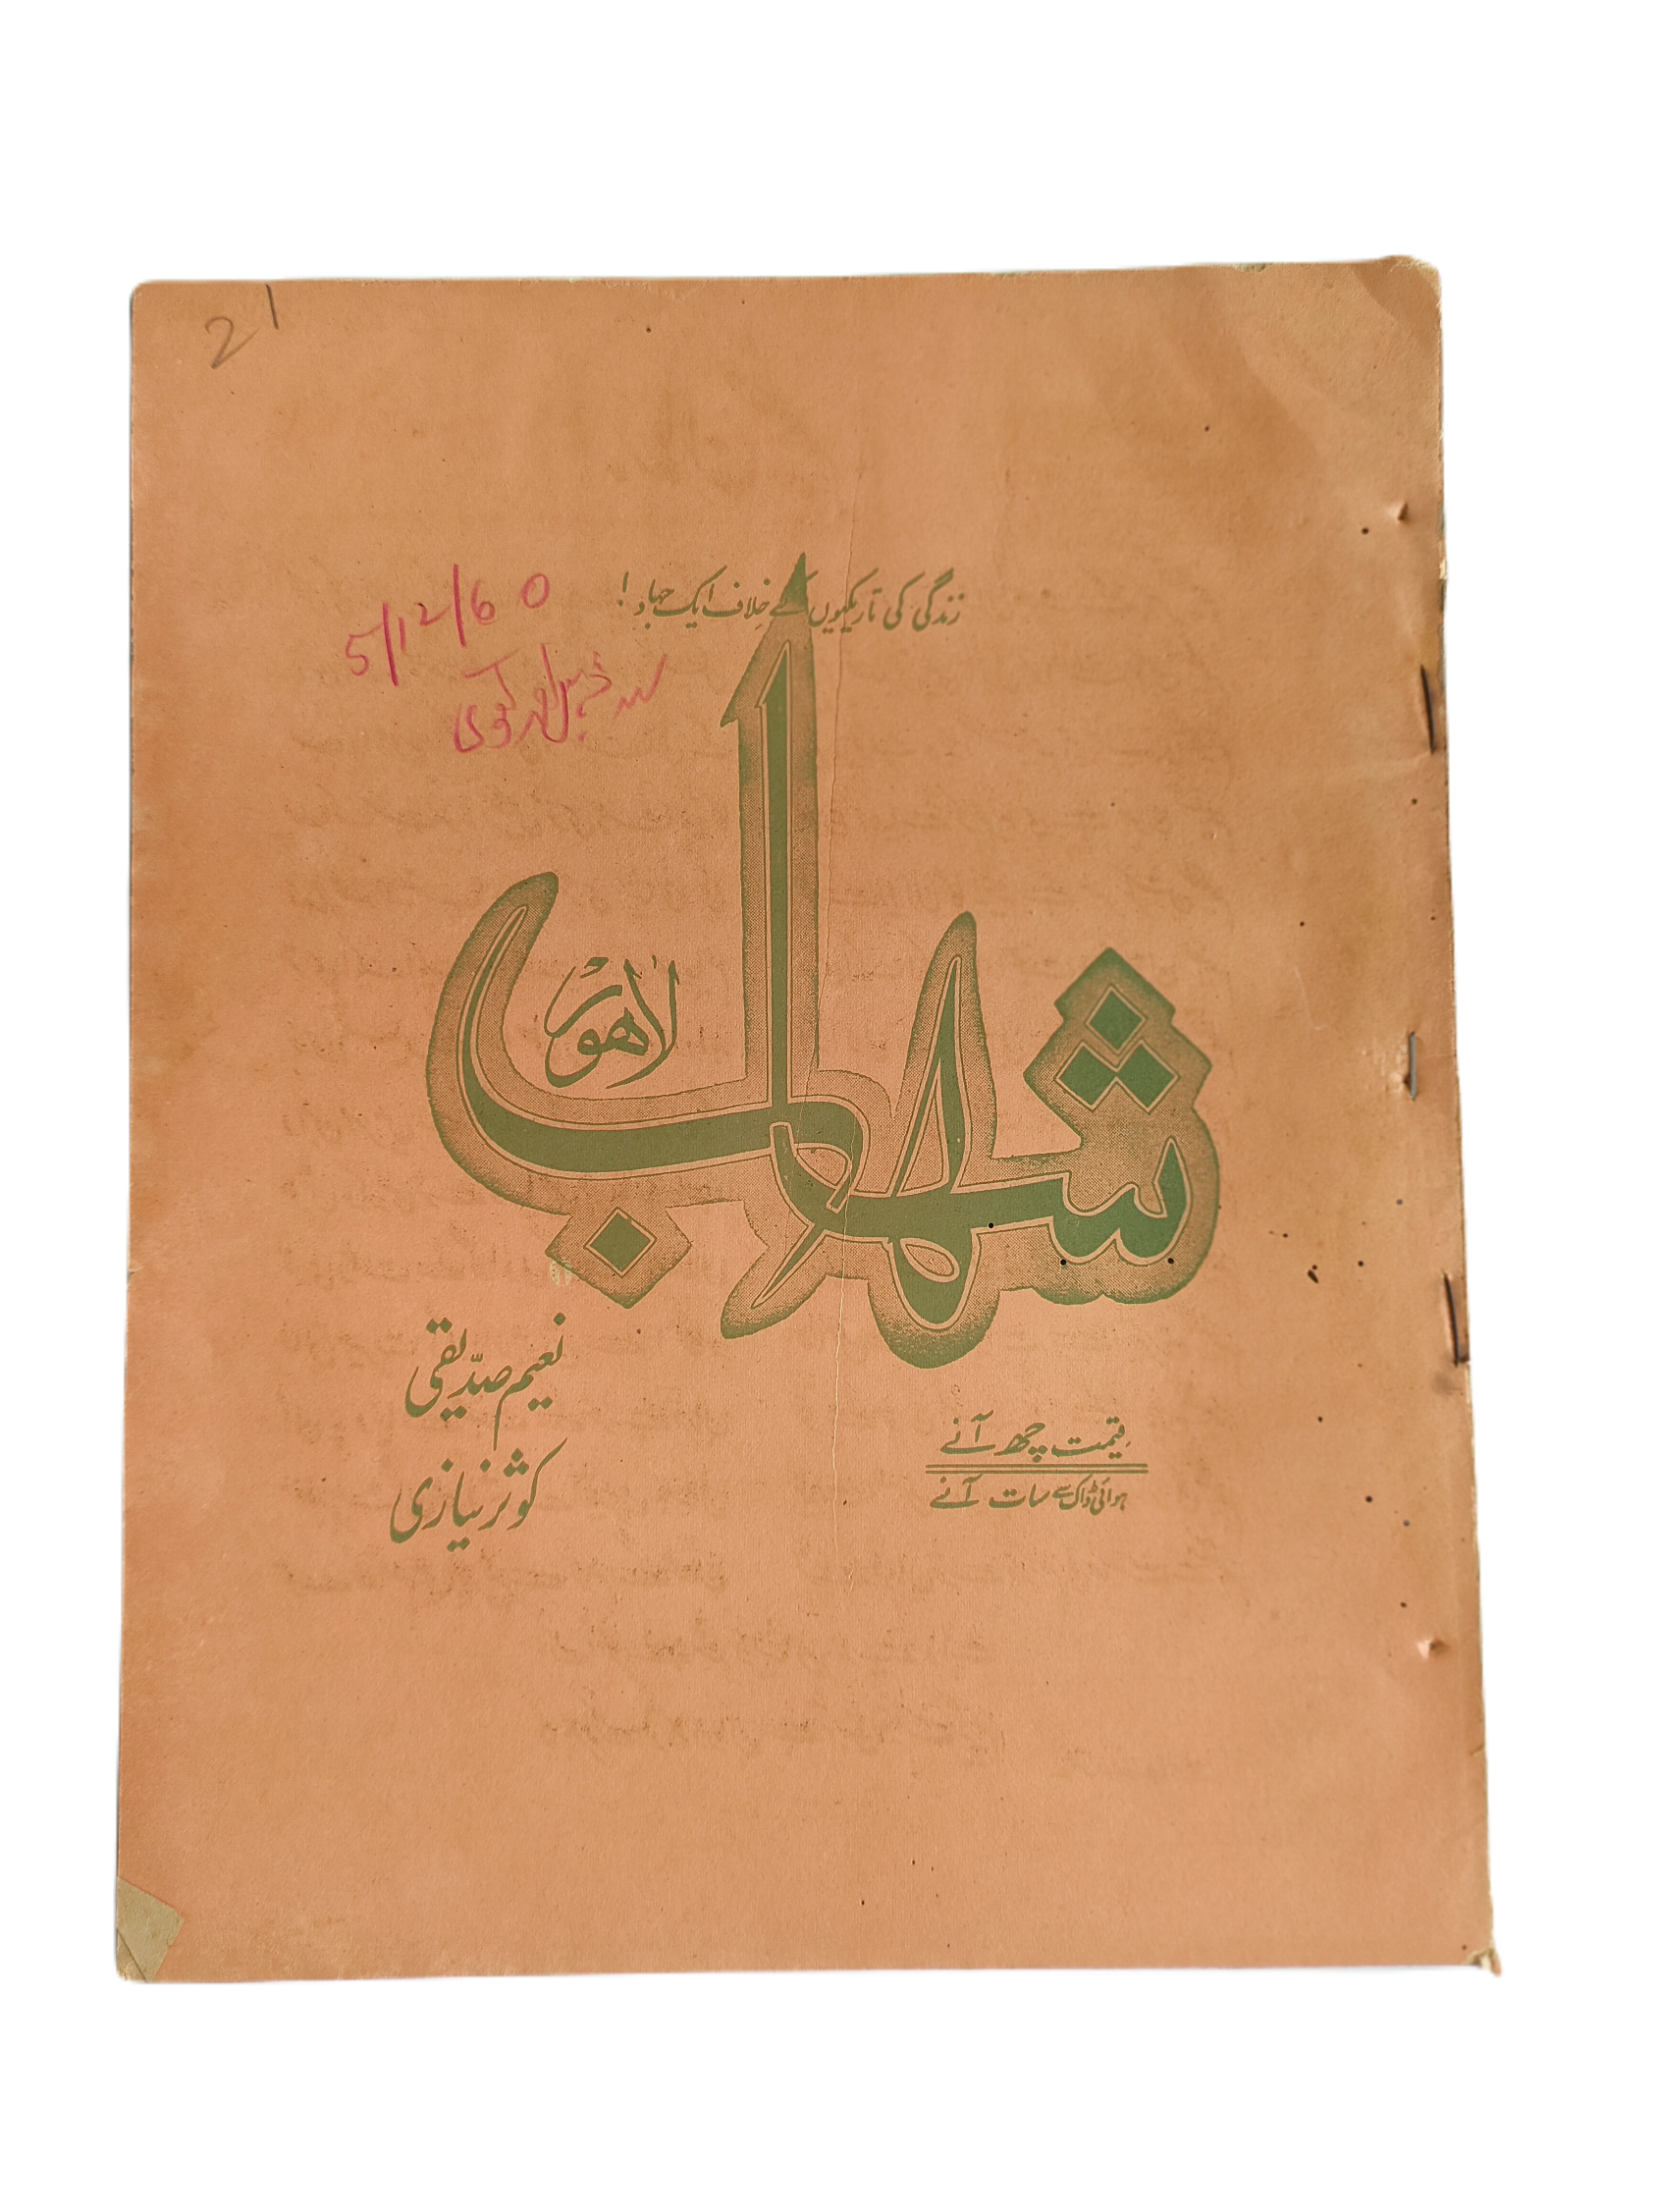 21
زندگی کی تاریکیوں کے خلاف ایک جہاد!
5/12/60
سید
شہاب
لاہور
نعیم صدّیقی
کوثر نیازی
قیمت چھ آنے
ہوائی ڈاک سے سات آنے